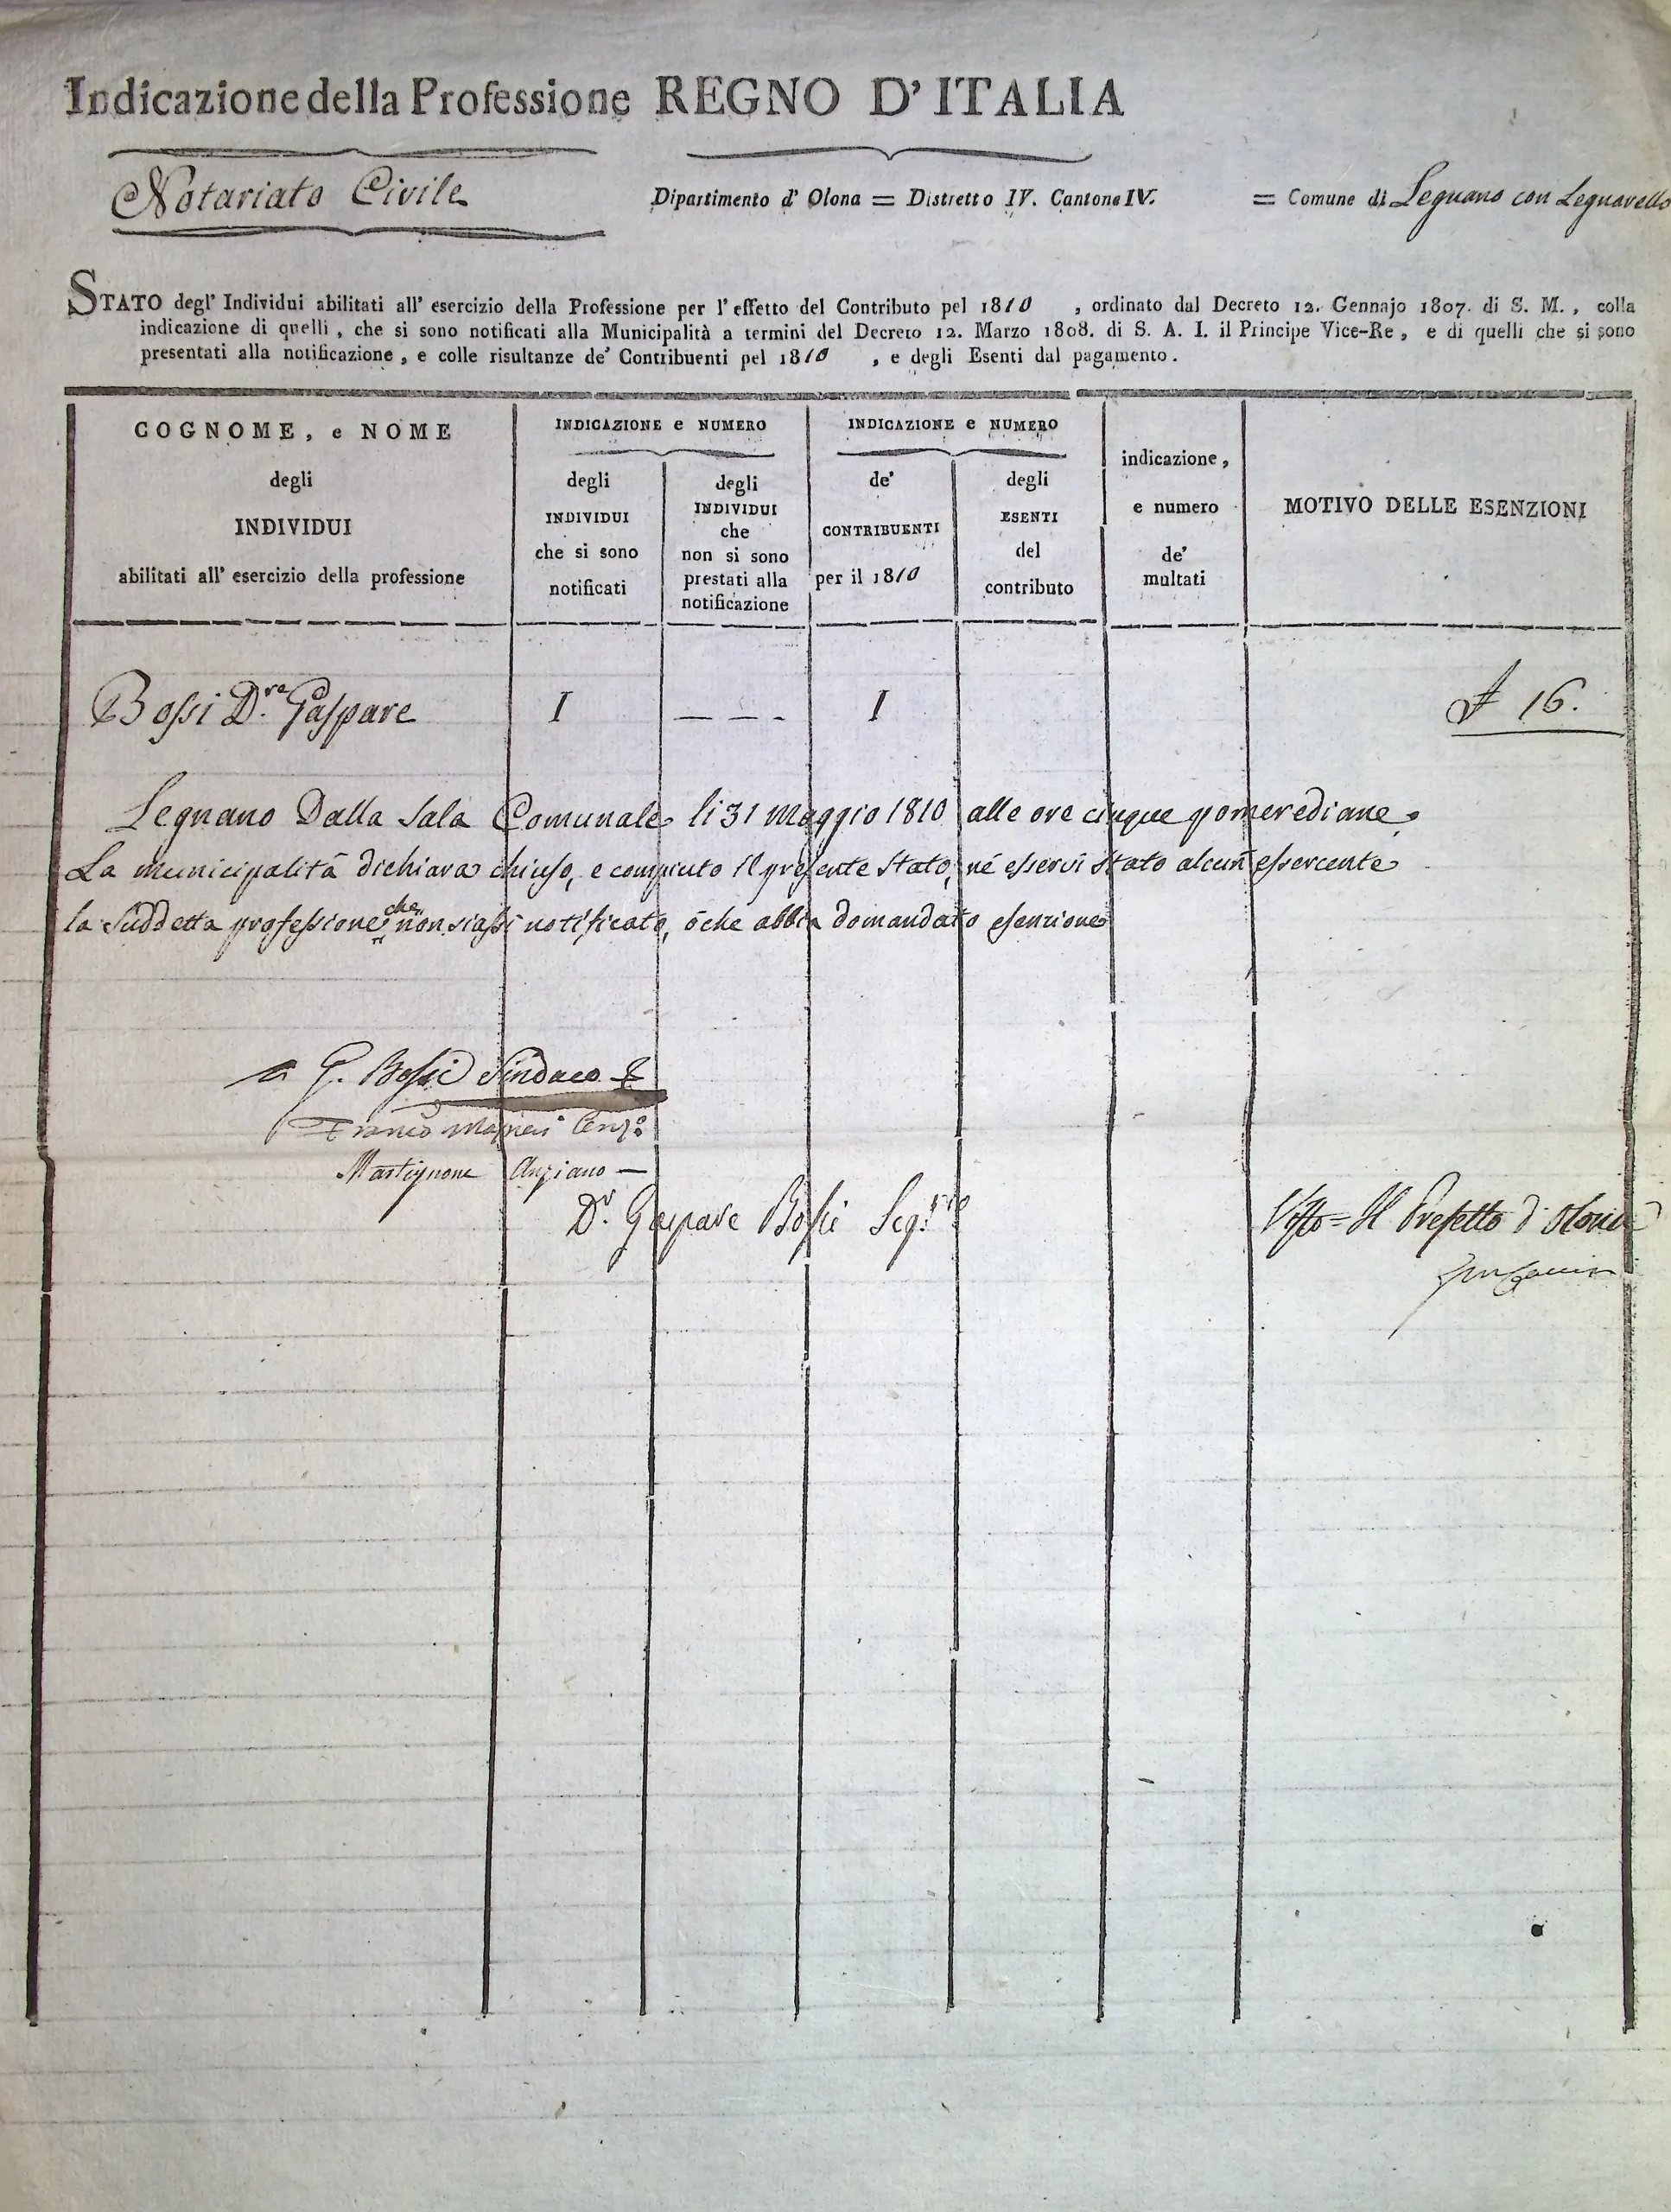 Indicazione della Professione REGNO D' ITALIA
Notariato Civile
Dipartimento d' Olona = Distretto IV. Cantone IV. = Comune di Legnano con Legnarello
STATO degl' Individui abilitati all' esercizio della Professione per l' effetto del Contributo pel 1810 , ordinato dal Decreto 12. Gennajo 1807. di S. M., colla
indicazione di quelli, che si sono notificati alla Municipalità a termini del Decreto 12. Marzo 1808. di S. A. I. il Principe Vice-Re, e di quelli che si sono
presentati alla notificazione, e colle risultanze de' Contribuenti pel 1810 , e degli Esenti dal pagamento.
COGNOME, e NOME
degli
INDIVIDUI
abilitati all' esercizio della professione
INDICAZIONE e NUMERO
degli
INDIVIDUI
che si sono
notificati
degli
INDIVIDUI
che
non si sono
prestati alla
notificazione
INDICAZIONE e NUMERO
de'
CONTRIBUENTI
per il 1810
degli
ESENTI
del
contributo
indicazione,
e numero
de'
multati
MOTIVO DELLE ESENZIONI
Bossi D.re Gaspare I — — - I 16.
Legnano Dalla Sala Comunale li 31 Maggio 1810 alle ore cinque pomerediane.
La municipalità dichiara chiuso, e compiuto il presente Stato, né esservi stato alcun essercente
la suddetta professione che non siassi notificato, ò che abbia domandato esenzione
G. Bossi Sindaco
Martignone Anziano —
D.r Gaspare Bossi Seg.rio
Visto = Il Prefetto d' Olona